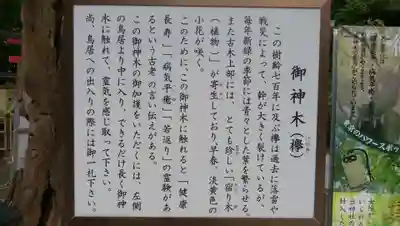 御神木(欅)
この樹齢七百年に及ぶ欅は過去に落雷や
戦災によって、幹が大きく裂けているが、
毎年新緑の季節には青々とした葉を繁らせる。
また古木上部には、とても珍しい「宿り木
(植物)」が寄生しており早春、淡黄色の
小花が咲く。
このために、この御神木に触れると「健康
長寿」「病気平癒」「若返り」の霊験があ
るという古老の言い伝えがある。
この御神木の御加護をいただくには、左側
の鳥居より中に入り、できるだけ長く御神
木に触れて、霊気を感じ取って下さい。
尚、鳥居への出入りの際には御一礼下さい。